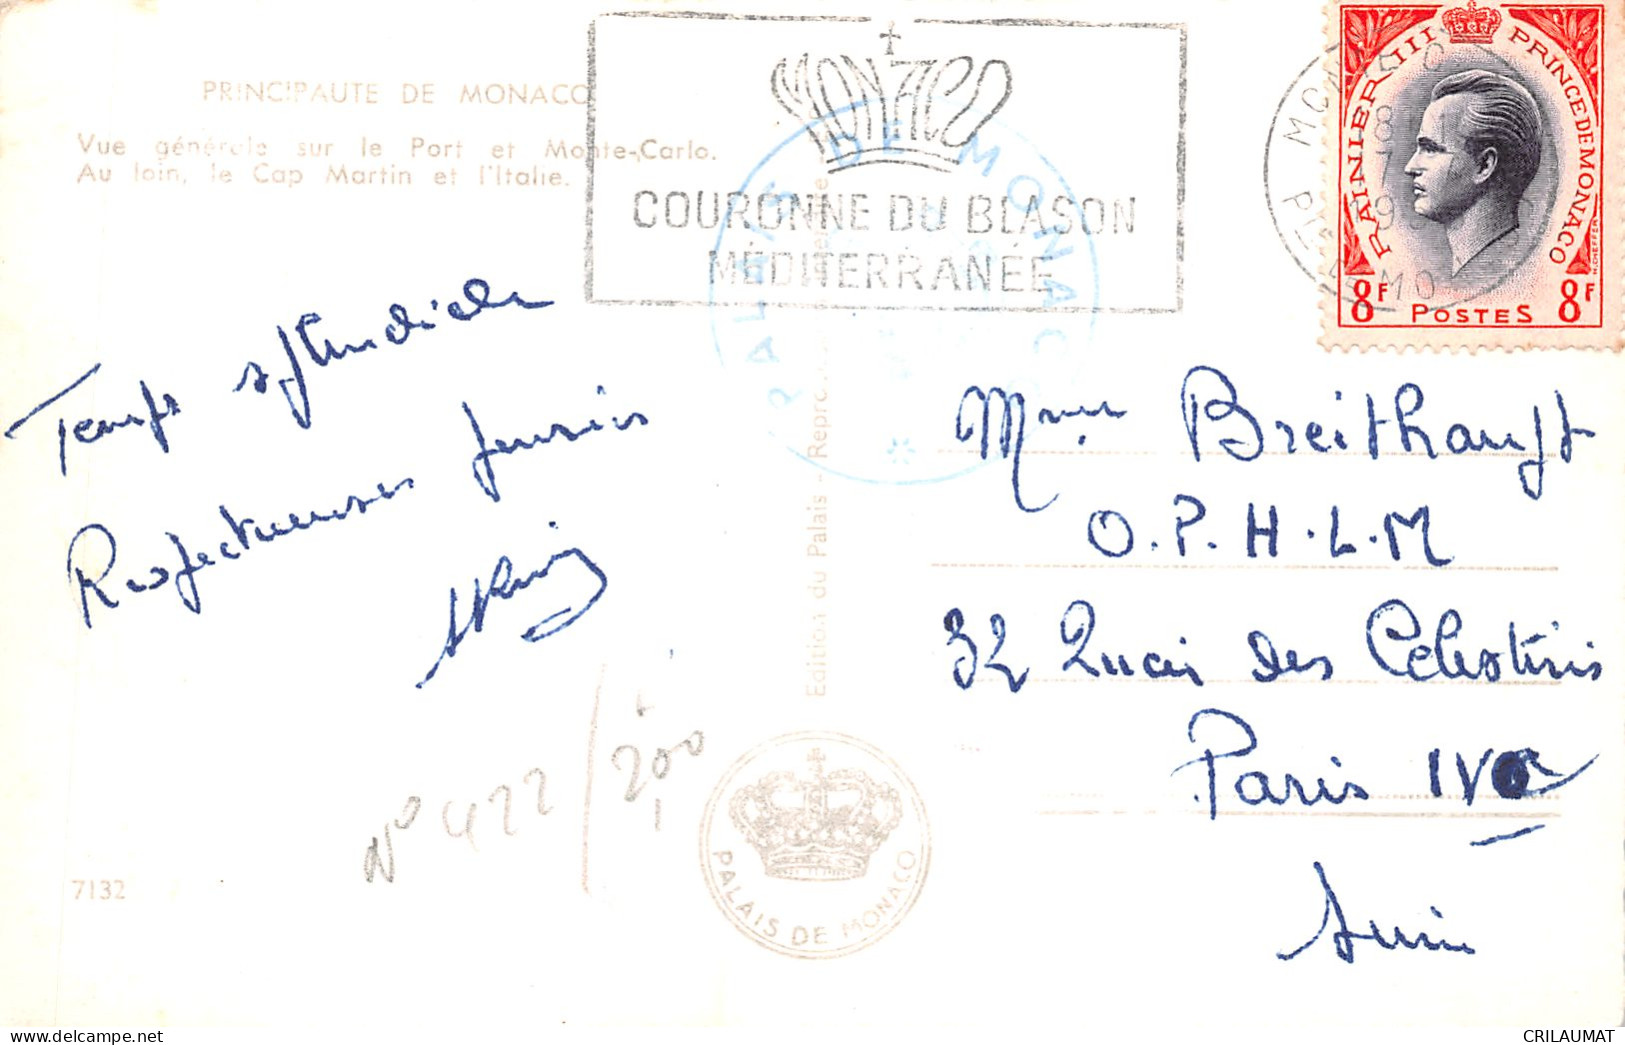 PRINCIPAUTE DE MONACO
Vue générale sur le Port et Monte-Carlo.
Au loin, le Cap Martin et l'Italie.
MONACO
COURONNE DU BLASON
MÉDITERRANÉE
PALAIS DE MONACO
RAINIER III PRINCE DE MONACO
8F POSTES 8F
Temps splendide
Respectueuses
Mme Breithaupt
O.P.H.L.M
32 Quai des Célestins
Paris IV
N° 422/200
7132
Edition du Palais - Repro
PALAIS DE MONACO
CRILAUMAT